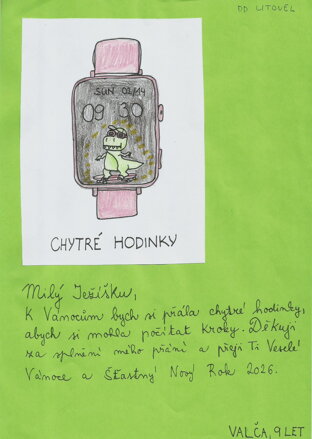 DD LITOVEL
SUN 02/14
09 30
CHYTRÉ HODINKY
Milý Ježíšku,
K Vánocům bych si přála chytré hodinky,
abych si mohla počítat kroky. Děkuji
za splnění mého přání a přeji Ti Veselé
Vánoce a Šťastný Nový Rok 2026.
VALČA, 9 LET